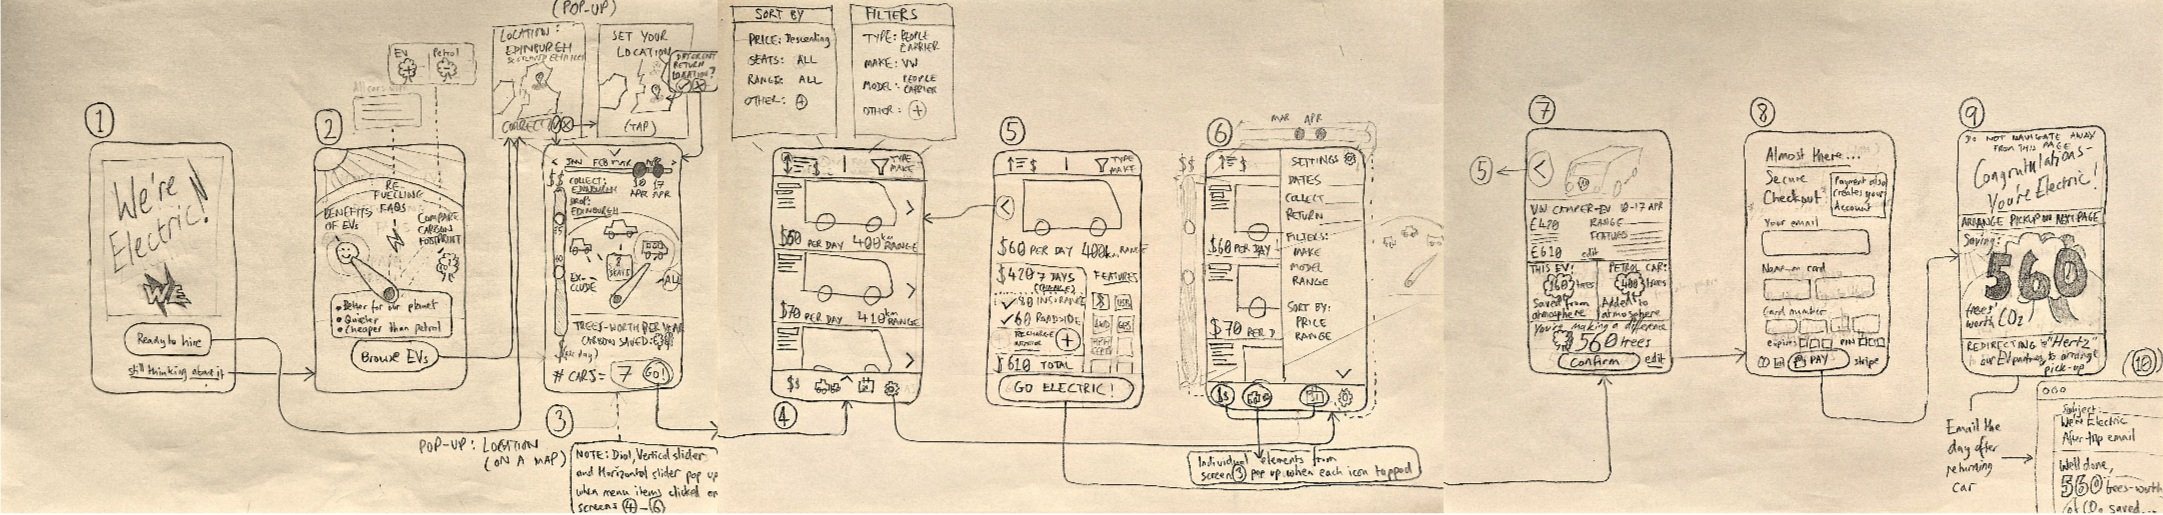 (POP-UP)
EV
Petrol
All cars
LOCATION:
EDINBURGH
CORRECT?
SET YOUR
LOCATION
(TAP)
DIFFERENT
RETURN
LOCATION?
SORT BY
PRICE: Descending
SEATS: ALL
RANGE: ALL
OTHER: +
FILTERS
TYPE: PEOPLE
CARRIER
MAKE: VW
MODEL: PEOPLE
CARRIER
OTHER: +
1
We're
Electric!
WE
Ready to hire
Still thinking about it
2
RE-
FUELLING
FAQS
BENEFITS
OF EVs
COMPARE
CARBON
FOOTPRINT
• Better for our planet
• Quieter
• Cheaper than petrol
Browse EVs
POP-UP: LOCATION
(ON A MAP)
3
JAN FEB MAR APR
$$
COLLECT:
EDINBURGH
DROP:
EDINBURGH
10
APR
17
APR
8
SEATS
EX-
CLUDE
ALL
TREES-WORTH PER YEAR
CARBON SAVED:
# CARS = 7
GO!
NOTE: Dial, Vertical slider
and Horizontal slider pop up
when menu items clicked on
screens 4 - 6
4
$
TYPE
MAKE
$60 PER DAY 400km RANGE
$70 PER DAY 410km RANGE
$$
5
$
TYPE
MAKE
$60 PER DAY 400km RANGE
$420 7 DAYS
(CHANGE)
FEATURES
80 INSURANCE
60 ROADSIDE
RECHARGE
+
$610 TOTAL
GO ELECTRIC!
6
MAR APR
$$
$
SETTINGS
DATES
COLLECT
RETURN
FILTERS:
MAKE
MODEL
RANGE
SORT BY:
PRICE
RANGE
$60 PER DAY
$70 PER D
$$
Individual elements from
screen 3 pop up when each icon tapped
7
5
VW CAMPER-EV 10-17 APR
£420
RANGE
FEATURES
£610
edit
THIS EV:
160 trees
Saved from
atmosphere
PETROL CAR:
400 trees
Added to
atmosphere
You're making a difference
560 trees
Confirm
edit
8
Almost there...
Secure
Checkout
Payment also
creates your
Account
Your email
Name on card
Card number
expires
PIN
PAY
stripe
9
DO NOT NAVIGATE AWAY
FROM THIS PAGE
Congratulations-
You're Electric!
ARRANGE PICKUP ON NEXT PAGE
Saving:
560
trees'
worth CO2
REDIRECTING to "Hertz"
our EV partner to arrange
pick-up
Email the
day after
returning
car
10
Subject:
We're Electric
After trip email
Well done,
560 trees-worth
of CO2 saved...